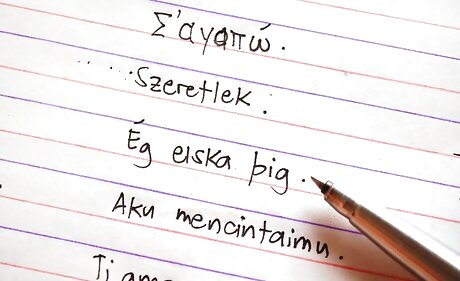 Σ'αγαπώ.
Szeretlek.
Ég elska þig.
Aku mencintaimu.
Ti amo